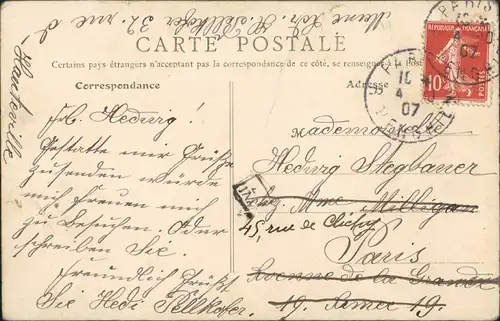 Meine Adr. H. Pellkofer 32. rue d
Hauteville
CARTE POSTALE
Certains pays étrangers n'acceptant pas la correspondance de ce côté, se renseigner à la Poste
Correspondance
Adresse
Frl. Hedwig!
Gestatte mir Grüße
zusenden würde
mich freuen mich
zu Besuchen. Oder
schreiben Sie.
Freundlich Grüßt
Sie Hedi Pellkofer.
Mademoiselle
Hedwig Steglauer
chez Mme. Milligan
45, rue de Clichy
Paris
Avenue de la Grande
19. Armee 19.
PARIS
10
4
07
PARIS
10
07
10